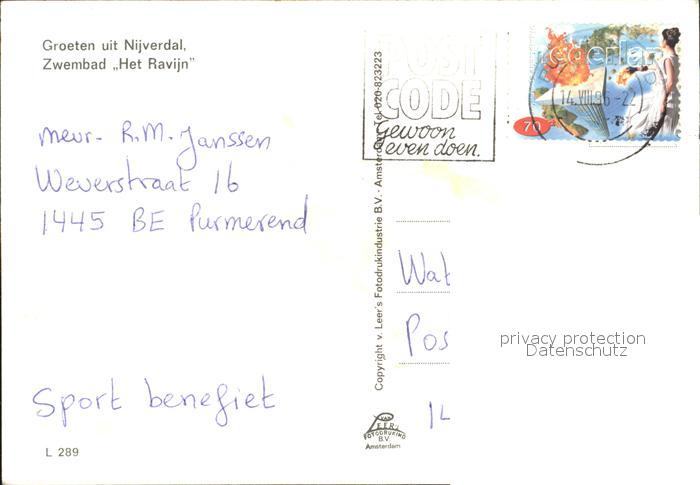 Groeten uit Nijverdal,
Zwembad „Het Ravijn”
mevr. R.M. Janssen
Weverstraat 16
1445 BE Purmerend
Sport benefiet
L 289
Copyright v. Leer's Fotodrukindustrie B.V. - Amsterdam Tel-020-823223
POST
CODE
Gewoon
even doen.
Nederland
70
14.VIII.96-22
Wat
Pos
14
VAN
LEER'S
FOTODRUKIND
B.V.
Amsterdam
privacy protection
Datenschutz